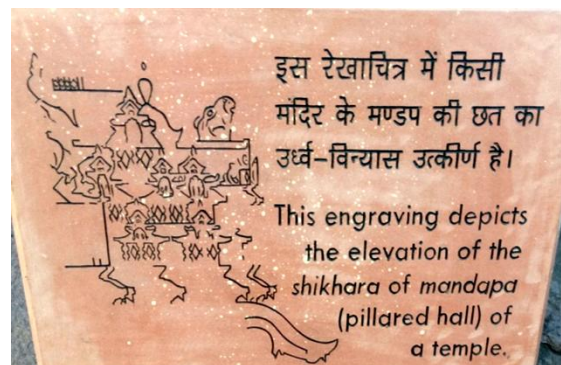 इस रेखाचित्र में किसी
मंदिर के मण्डप की छत का
उर्ध्व-विन्यास उत्कीर्ण है।
This engraving depicts
the elevation of the
shikhara of mandapa
(pillared hall) of
a temple.